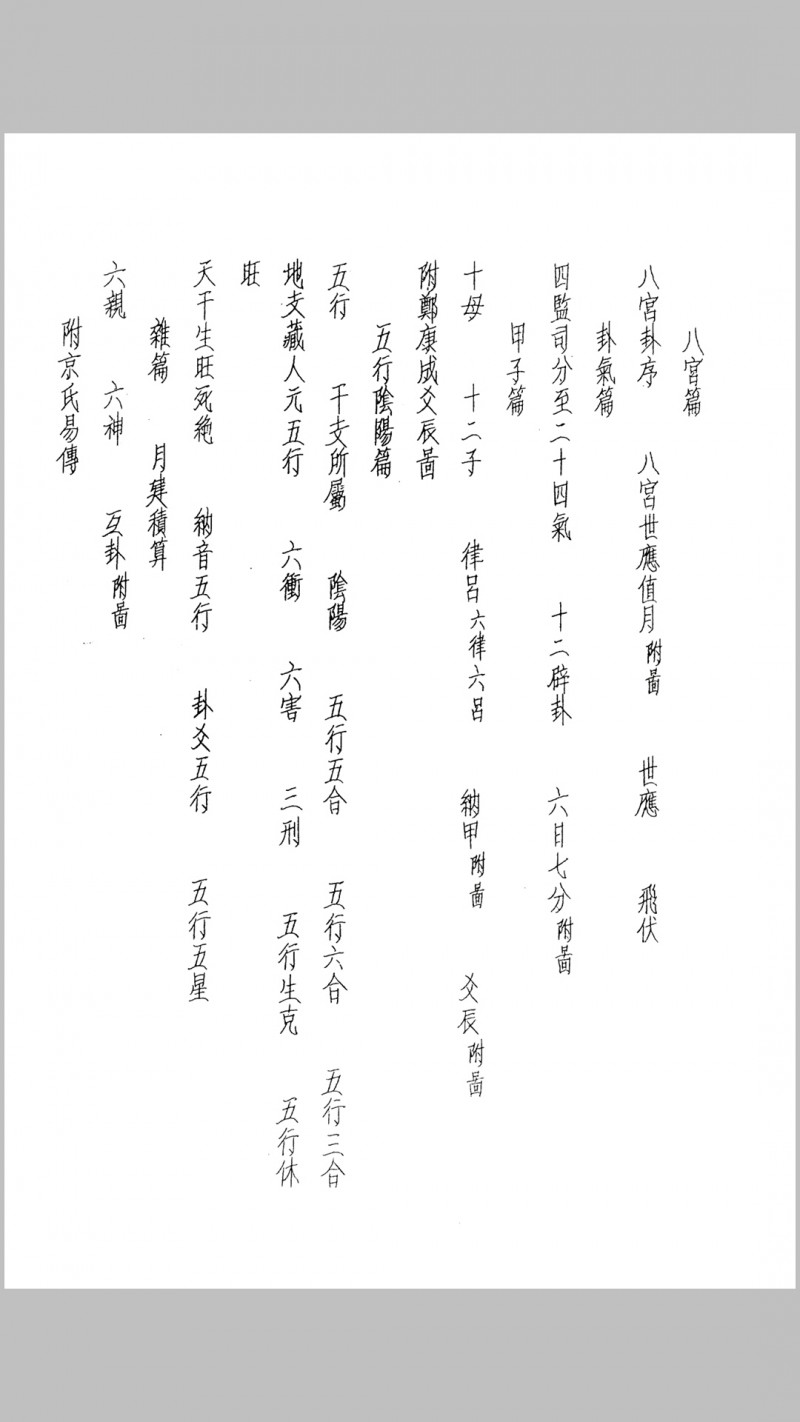 八宮篇
八宮卦序 八宮世應值月附圖 世應 飛伏
卦氣篇
四監司分至二十四氣 十二辟卦 六日七分附圖
甲子篇
十母 十二子 律呂六律六呂 納甲附圖 爻辰附圖
附鄭康成爻辰圖
五行陰陽篇
五行 干支所屬 陰陽 五行五合 五行六合 五行三合
地支藏人元五行 六衝 六害 三刑 五行生克 五行休
旺
天干生旺死絶 納音五行 卦爻五行 五行五星
雜篇 月建積算
六親 六神 互卦附圖
附京氏易傳